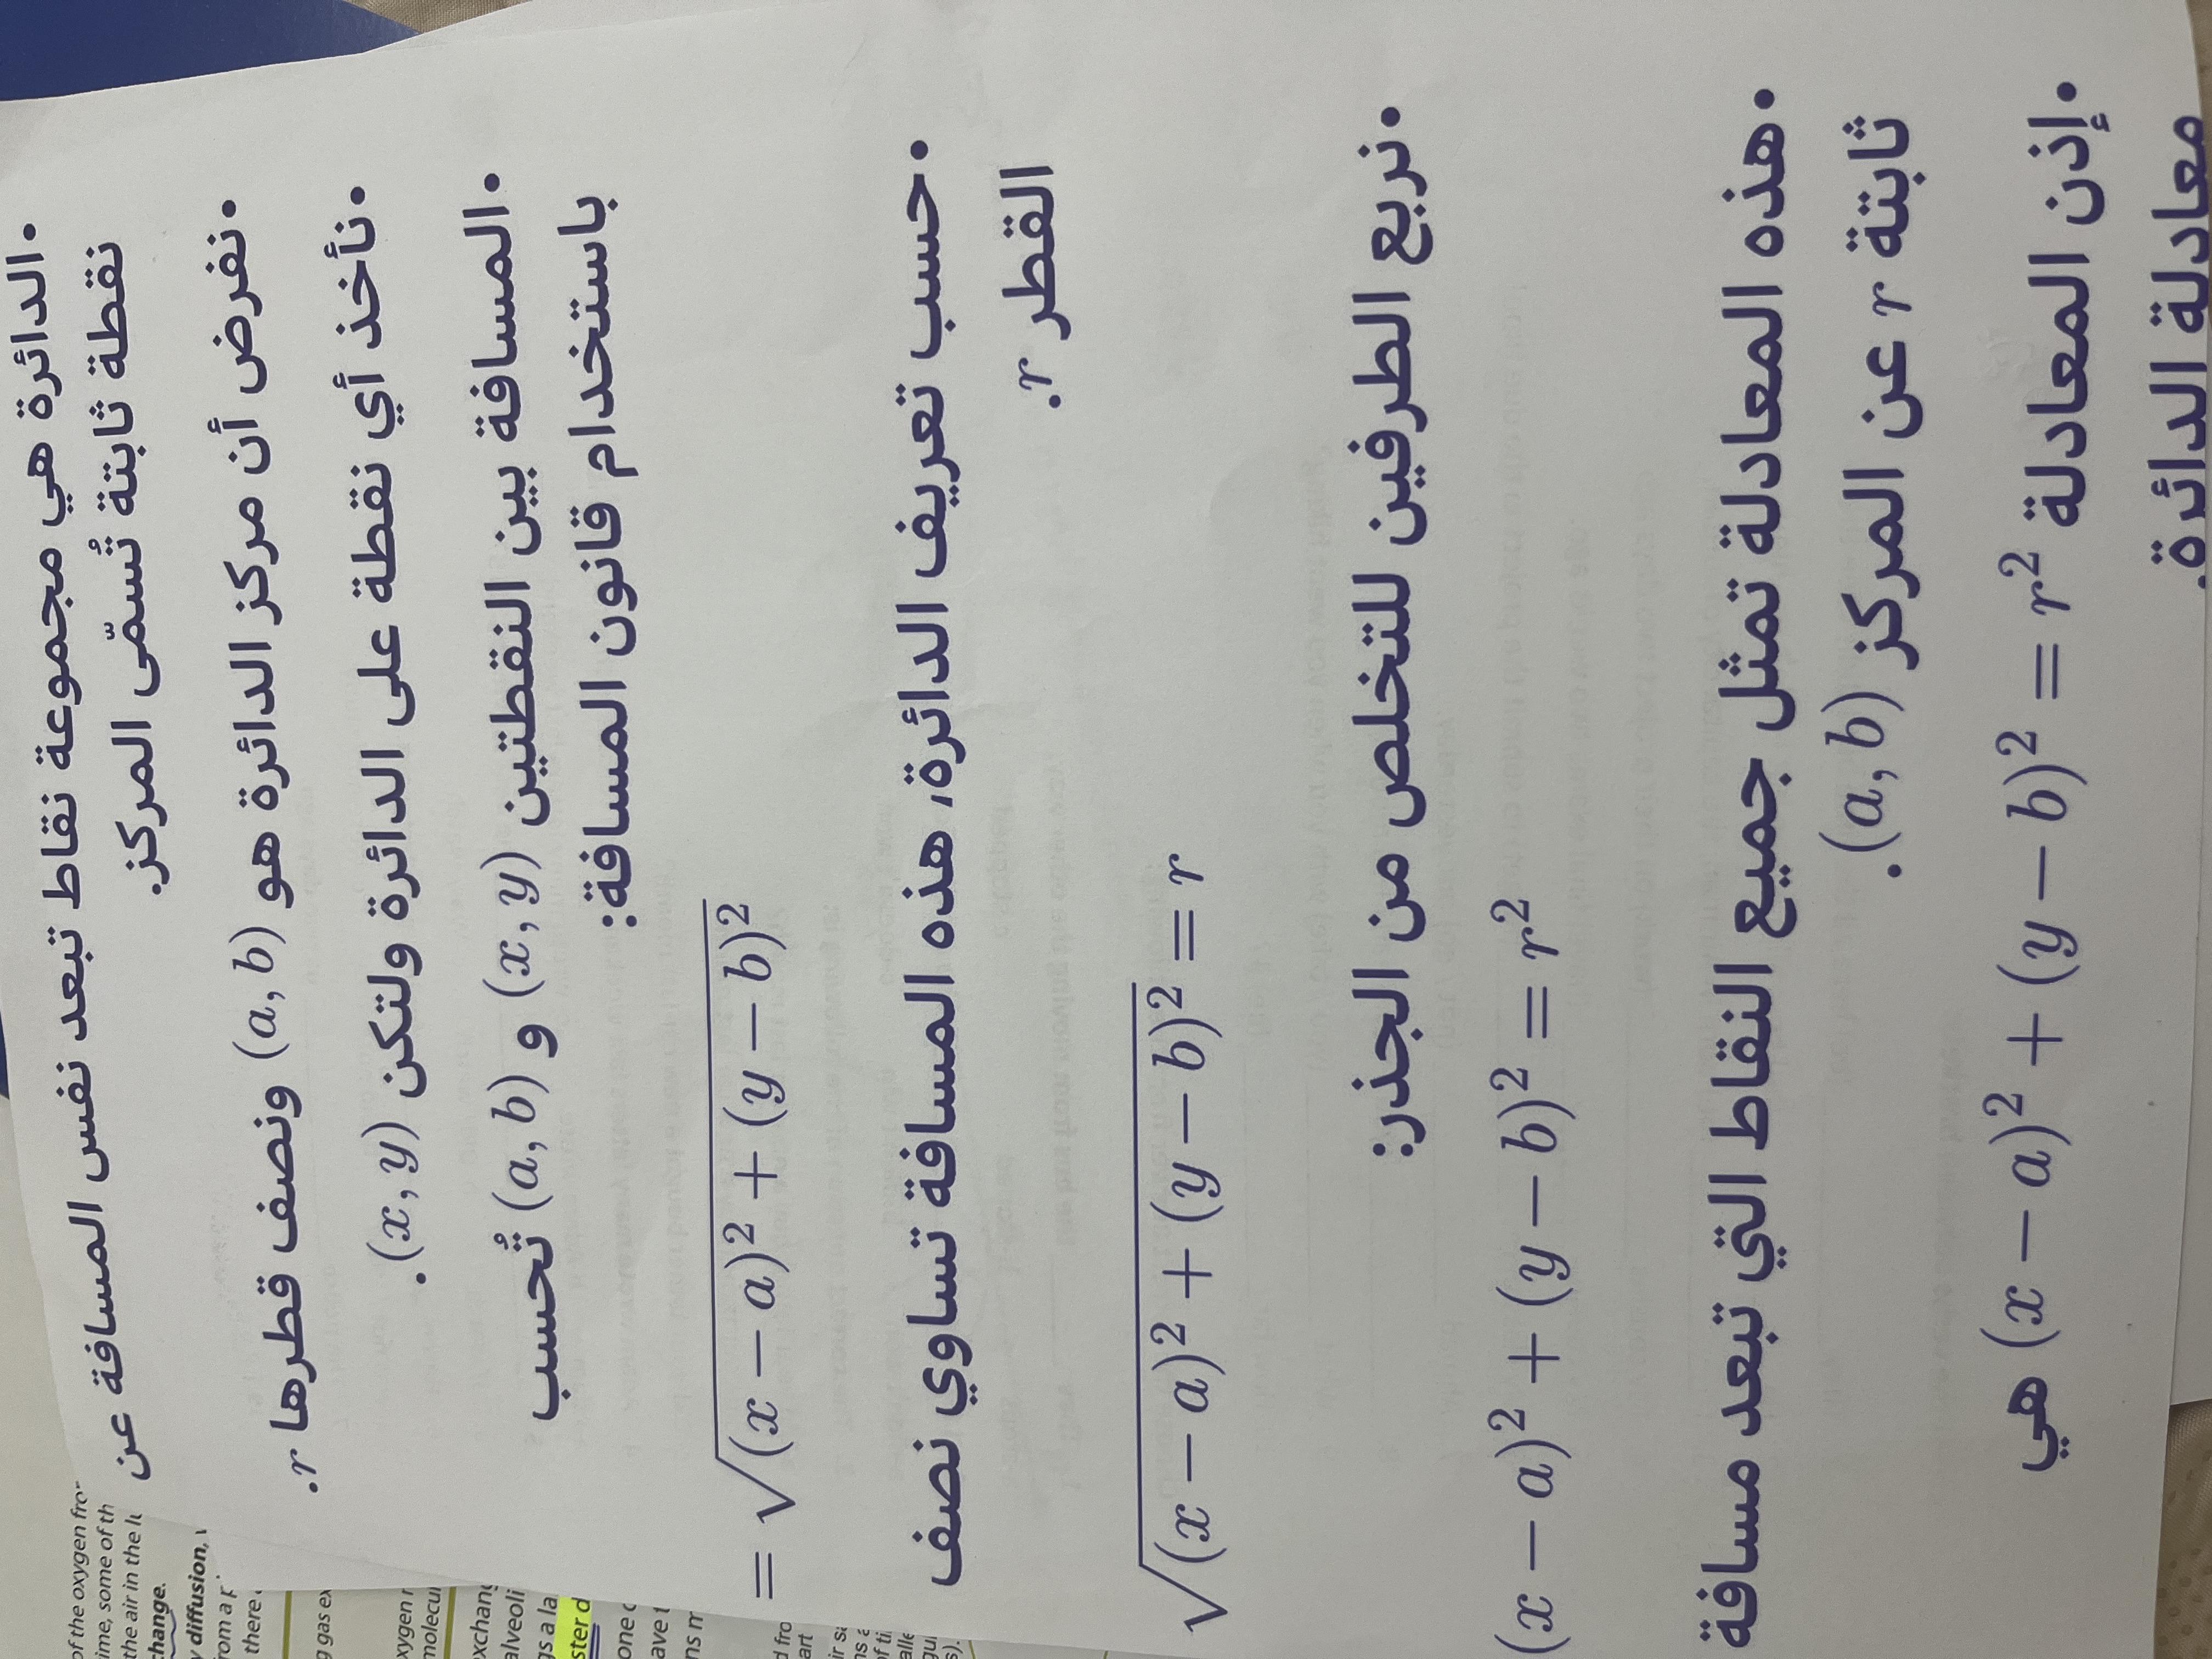 •الدائرة هي مجموعة نقاط تبعد نفس المسافة عن
نقطة ثابتة تُسمّى المركز.
•نفرض أن مركز الدائرة هو (a, b) ونصف قطرها r.
•نأخذ أي نقطة على الدائرة ولتكن (x, y).
•المسافة بين النقطتين (x, y) و (a, b) تُحسب
باستخدام قانون المسافة:
= √((x − a)² + (y − b)²)
•حسب تعريف الدائرة، هذه المسافة تساوي نصف
القطر r.
√((x − a)² + (y − b)²) = r
•نربع الطرفين للتخلص من الجذر:
(x − a)² + (y − b)² = r²
•هذه المعادلة تمثل جميع النقاط التي تبعد مسافة
ثابتة r عن المركز (a, b).
•إذن المعادلة (x − a)² + (y − b)² = r² هي
معادلة الدائرة.
of the oxygen
ime, some of th
the air in the
change.
diffusion,
rom a
there
g gas
oxygen
gs a la
one